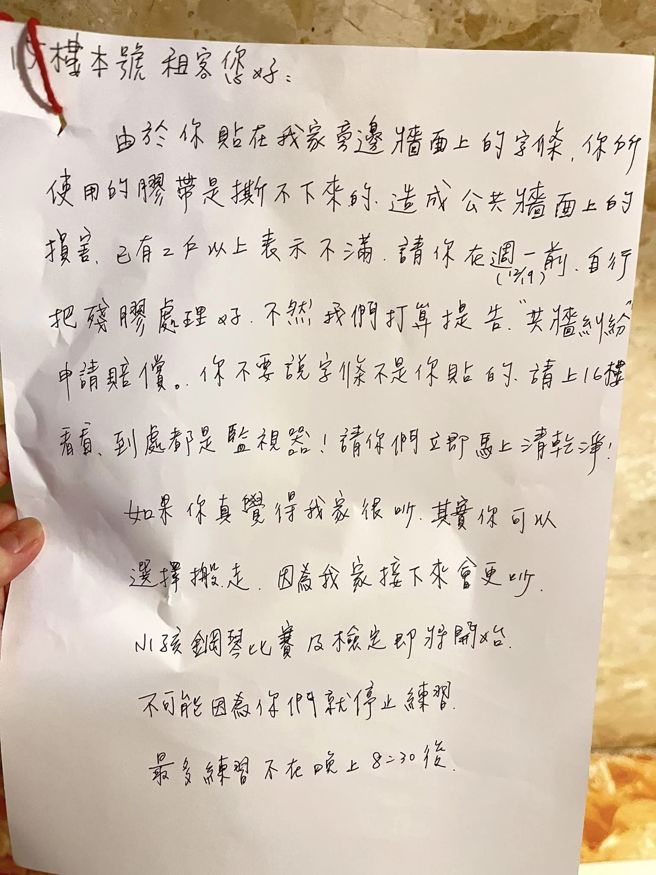 15樓本號 租客您好：
由於你貼在我家旁邊牆面上的字條，你所
使用的膠帶是撕不下來的. 造成公共牆面上的
損害、已有2戶以上表示不滿. 請你在週一前. 自行
(12/19)
把殘膠處理好. 不然我們打算提告. "共牆糾紛"
申請賠償。. 你不要說字條不是你貼的. 請上16樓
看看、到處都是監視器！請你們立即馬上清乾淨！
如果你真覺得我家很吵. 其實你可以
選擇搬走. 因為我家接下來會更吵.
小孩鋼琴比賽及檢定即將開始.
不可能因為你們就停止練習.
最多練習不在晚上8:30後.